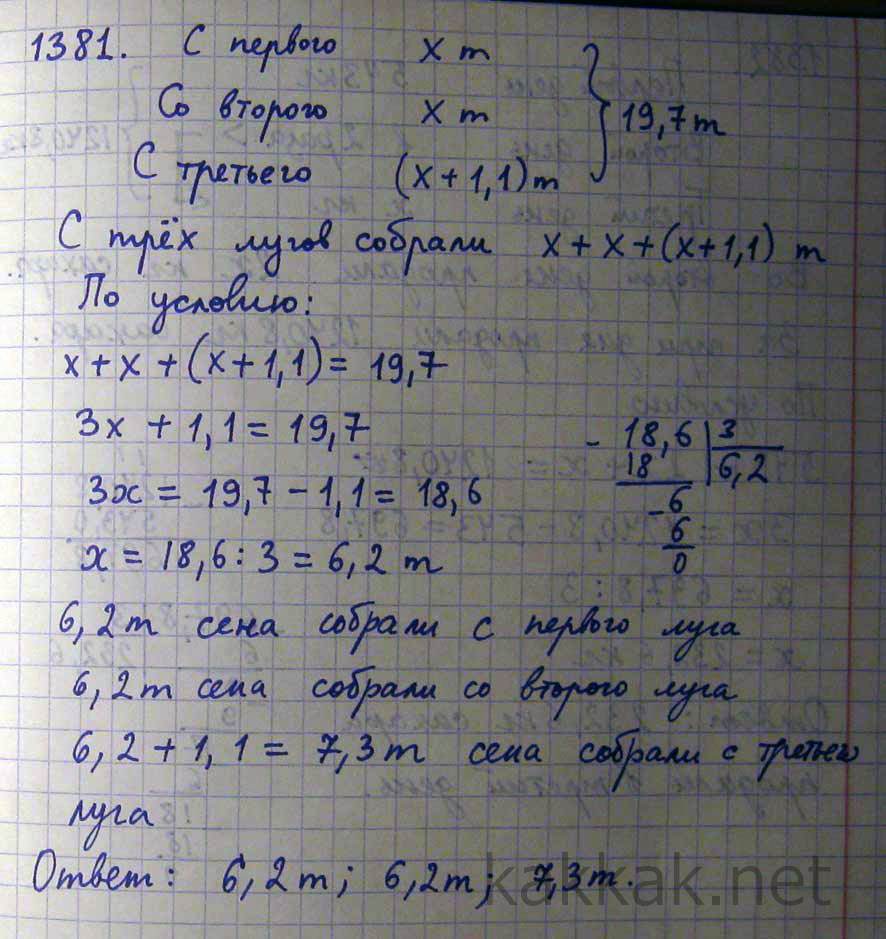 1381. С первого x т
Со второго x т } 19,7 т
С третьего (x + 1,1) т
С трёх лугов собрали x + x + (x + 1,1) т
По условию:
x + x + (x + 1,1) = 19,7
3x + 1,1 = 19,7
3x = 19,7 - 1,1 = 18,6
x = 18,6 : 3 = 6,2 т
- 18,6 | 3
18 | 6,2
- 6
6
0
6,2 т сена собрали с первого луга
6,2 т сена собрали со второго луга
6,2 + 1,1 = 7,3 т сена собрали с третьего
луга
Ответ: 6,2 т; 6,2 т; 7,3 т.
kakkak.net